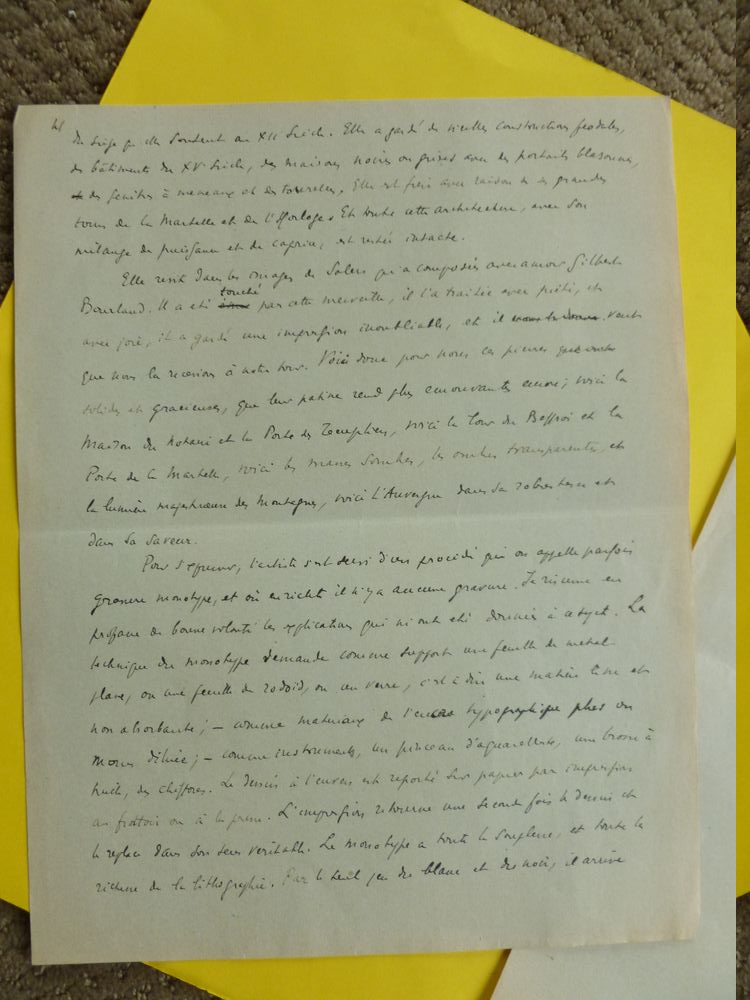 du siège qu'elle soutint au XIIe siècle. Elle a gardé de vieilles constructions féodales,
des bâtiments du XVe siècle, des maisons noires ou grises avec des portails blasonnés,
des fenêtres à meneaux et des tourelles. Elle est fière avec raison de ses grandes
tours de la Martelle et de l'Horloge. Et toute cette architecture, avec son
mélange de puissance et de caprice, est restée intacte.
Elle revit dans les images de Salers qu'a composées avec amour Gilbert
Bourland. Il a été touché par cette merveille, il l'a traitée avec piété, et
avec joie, il a gardé une impression inoubliable, et il veut
que nous la recevions à notre tour. Voici donc pour nous ces pierres
solides et gracieuses, que leur patine rend plus émouvantes encore ; voici la
Maison du notaire et la Porte des Templiers, voici la Tour du Beffroi et la
Porte de la Martelle, voici les masses sombres, les ombres transparentes, et
la lumière majestueuse des montagnes, voici l'Auvergne dans sa robustesse et
dans sa saveur.
Pour s'exprimer, l'artiste s'est servi d'un procédé qu'on appelle parfois
gravure monotype, et où en réalité il n'y a aucune gravure. Je résume en
profane de bonne volonté les explications qui m'ont été données à ce sujet. La
technique du monotype demande comme support une feuille de métal
plane, ou une feuille de rodoïd, ou un verre, c'est à dire une matière lisse et
non absorbante ; – comme matériau de l'encre typographique plus ou
moins diluée ; – comme instruments, un pinceau d'aquarelliste, une brosse à
huile, des chiffons. Le dessin à l'envers est reporté sur papier par impression
au frottoir ou à la presse. L'impression retourne une seconde fois le dessin et
le replace dans son sens véritable. Le monotype a toute la souplesse, et toute la
richesse de la lithographie. Par le seul jeu du blanc et du noir, il arrive